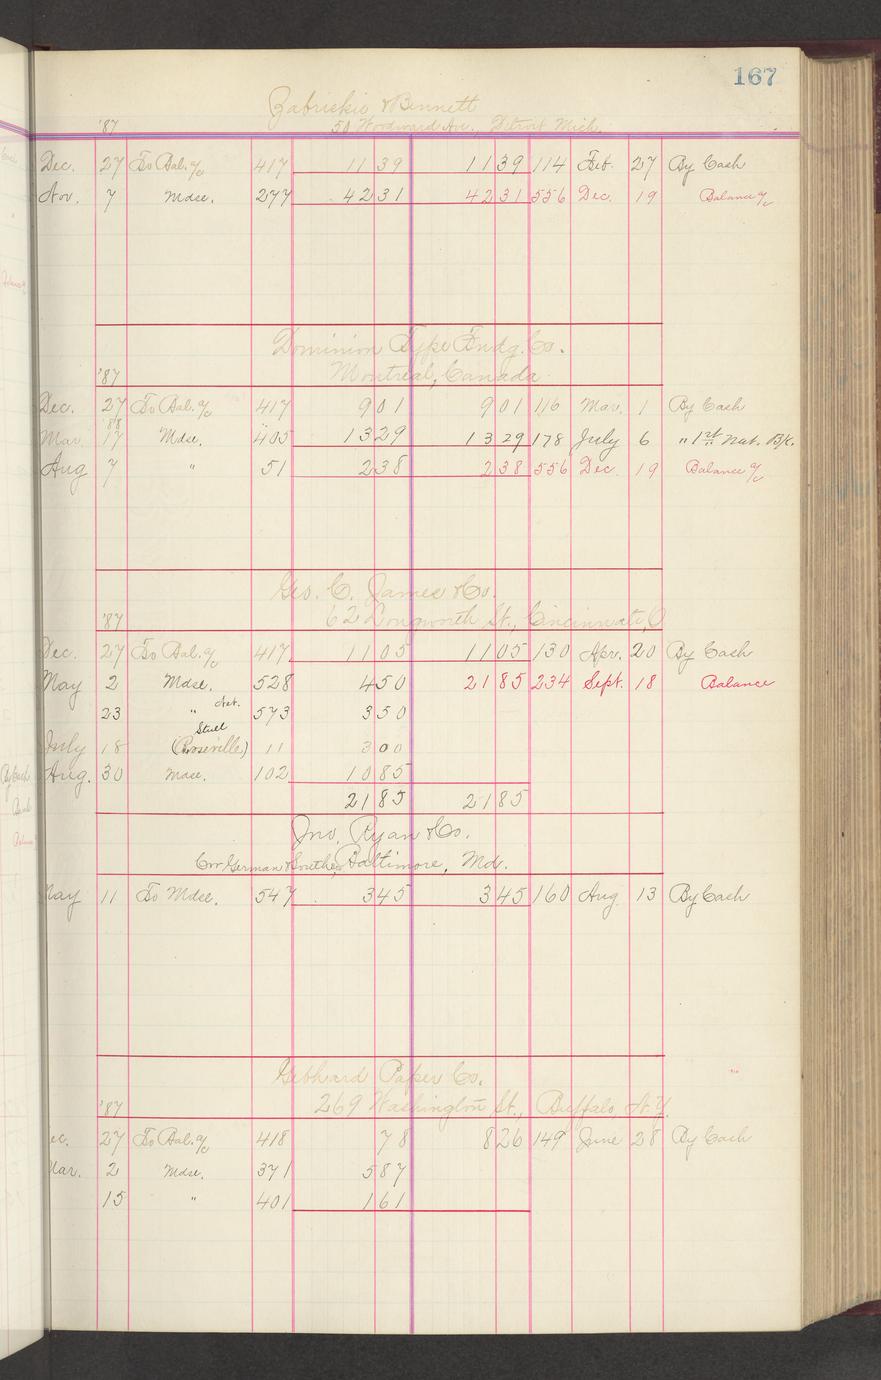 167
Zabriskie & Bennett
'87 50 Woodward Ave. Detroit Mich.
Dec. 27 To Bal. a/c 417 11 39 11 39 114 Feb. 27 By Cash
Nov. 7 Mdse. 277 42 31 42 31 556 Dec. 19 Balance a/c
Dominion Type Fndg. Co.
'87 Montreal, Canada
Dec. 27 To Bal. a/c 417 9 01 9 01 116 Mar. 1 By Cash
'88
Mar. 17 Mdse. 405 13 29 13 29 178 July 6 " 1st Nat. Bk.
Aug 7 " 51 2 38 2 38 556 Dec. 19 Balance a/c
Geo. C. James & Co.
'87 62 Longworth St., Cincinnati, O
Dec. 27 To Bal. a/c 417 11 05 11 05 130 Apr. 20 By Cash
May 2 Mdse. 528 4 50 21 85 234 Sept. 18 Balance
23 " 573 3 50
July 18 (Roseville) 11 3 00
Aug. 30 Mdse. 102 10 85
21 85 21 85
Jno. Ryan & Co.
Cor German & South Baltimore, Md.
May 11 To Mdse. 547 3 45 3 45 160 Aug 13 By Cash
Gebhard Paper Co.
'87 269 Washington St., Buffalo N.Y.
ec. 27 To Bal. a/c 418 78 8 26 149 June 28 By Cash
Mar. 2 Mdse. 371 5 87
15 " 401 1 61